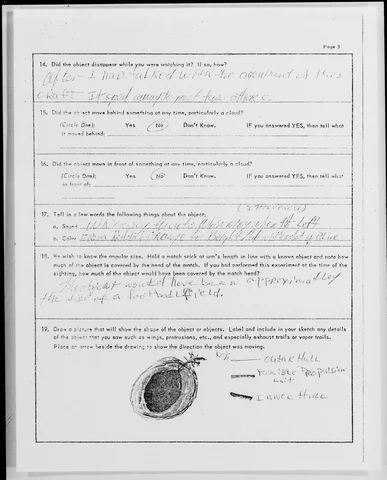 Page 3
14. Did the object disappear while you were watching it? If so, how?
After I had talked with the occupant of this
craft. It
15. Did the object move behind something at any time, particularly a cloud?
(Circle One): Yes No Don't Know. IF you answered YES, then tell what
it moved behind:
16. Did the object move in front of something at any time, particularly a cloud?
(Circle One): Yes No Don't Know. IF you answered YES, then tell what
in front of:
17. Tell in a few words the following things about the object:
a. Sound
b. Color from Bright Orange to Bright
18. We wish to know the angular size. Hold a match stick at arm's length in line with a known object and note how
much of the object is covered by the head of the match. If you had performed this experiment at the time of the
sighting, how much of the object would have been covered by the match head?
The object would have been approximatley
the size of a football field.
19. Draw a picture that will show the shape of the object or objects. Label and include in your sketch any details
of the object that you saw such as wings, protrusions, etc., and especially exhaust trails or vapor trails.
Place an arrow beside the drawing to show the direction the object was moving.
outer Hull
Possible Propulsion
unit
Inner Hull